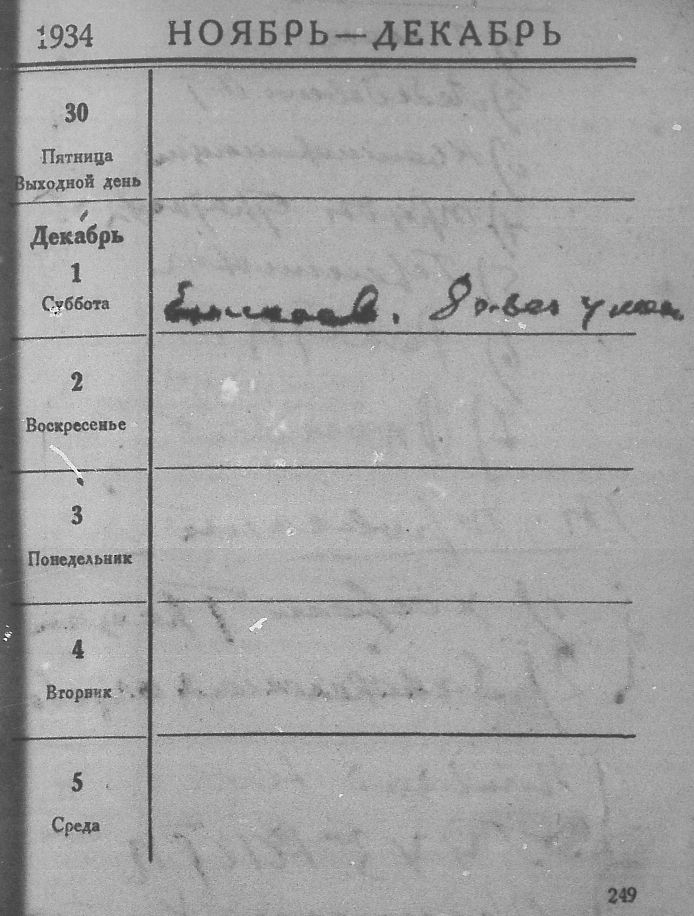 1934 НОЯБРЬ—ДЕКАБРЬ
30
Пятница
Выходной день
Декабрь
1
Суббота
2
Воскресенье
3
Понедельник
4
Вторник
5
Среда
249